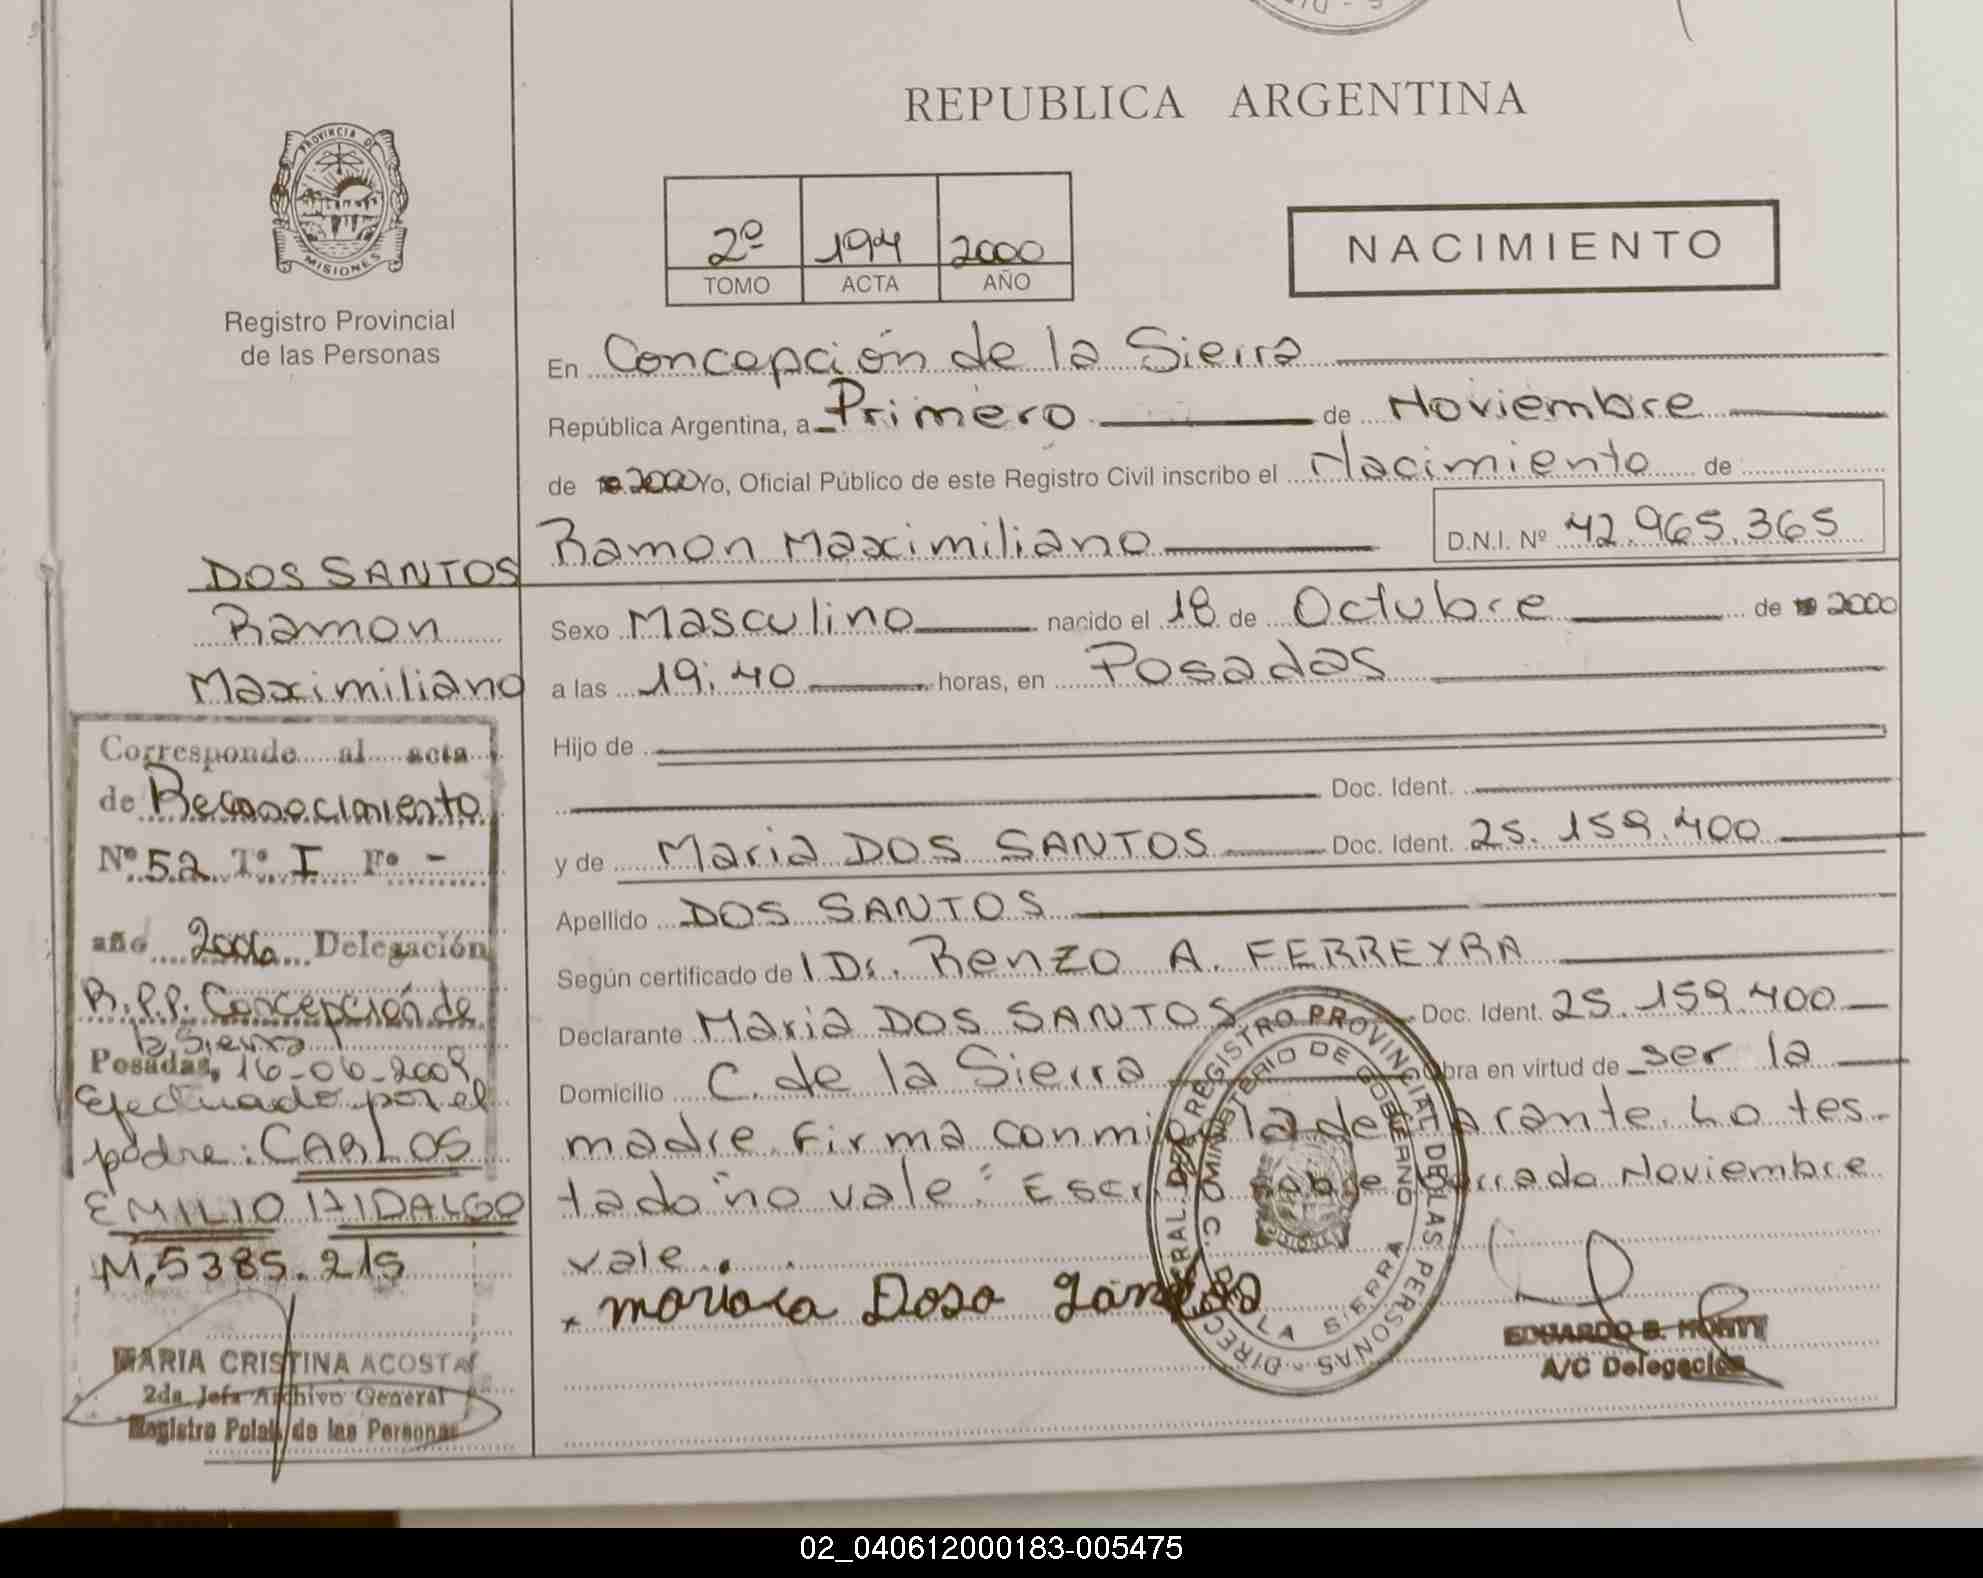 REPUBLICA ARGENTINA
PROVINCIA DE
MISIONES
Registro Provincial
de las Personas
2º 194 2000
TOMO ACTA AÑO
NACIMIENTO
En Concepción de la Sierra
República Argentina, a Primero de Noviembre
de 2000 Yo, Oficial Público de este Registro Civil inscribo el Nacimiento de
Ramon Maximiliano D.N.I. Nº 42.965.365
Sexo Masculino nacido el 18 de Octubre de 2000
a las 19:40 horas, en Posadas
Hijo de
Doc. Ident.
y de Maria DOS SANTOS Doc. Ident. 25.159.400
Apellido DOS SANTOS
Según certificado del Dr. Renzo A. FERREYRA
Declarante Maria DOS SANTOS Doc. Ident. 25.159.400
Domicilio C. de la Sierra Obra en virtud de ser la
madre. Firma conmigo la declarante. Lo tes-
tado "no vale". Escrito sobre borrado Noviembre
vale.
DOS SANTOS
Ramon
Maximiliano
Corresponde al acta
de Reconocimiento
Nº 52 Tº I Fº -
año Delegación
R.P.P. Concepción de
la Sierra
Posadas, 16-06-2009
Efectuado por el
padre: CARLOS
EMILIO HIDALGO
M. 5385.215
MARIA CRISTINA ACOSTA
2da Jefa Archivo General
Registro Pcial. de las Personas
DIRECC GRAL. DEL REGISTRO PROVINCIAL DE LAS PERSONAS
MINISTERIO DE GOBIERNO
C. DE LA SIERRA
EDUARDO B.
A/C Delegación
02_040612000183-005475